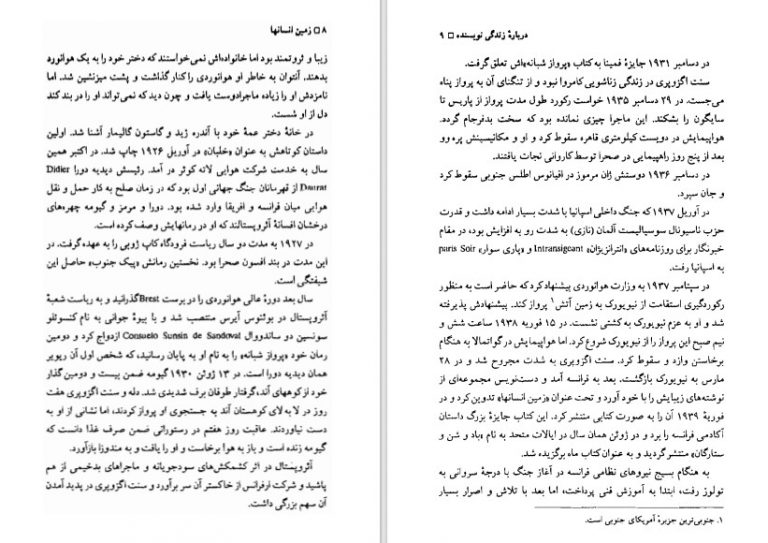 ۸ □ زمین انسانها
زیبا و ثروتمند بود اما خانواده‌اش نمی‌خواستند که دختر خود را به یک هوانورد
بدهند. آنتوان به خاطر او هوانوردی را کنار گذاشت و پشت میزنشین شد. اما
نامزدش او را زیاده ماجرادوست یافت و چون دید که نمی‌تواند او را در بند کند
دل از او شست.
در خانهٔ دختر عمهٔ خود با آندره ژید و گاستون گالیمار آشنا شد. اولین
داستان کوتاهش به عنوان «خلبان» در آوریل ۱۹۲۶ چاپ شد. در اکتبر همین
سال به خدمت شرکت هوایی لاته کوئر در آمد. رئیسش دیدیه دورا Didier
Daurat از قهرمانان جنگ جهانی اول بود که در زمان صلح به کار حمل و نقل
هوایی میان فرانسه و افریقا وارد شده بود. دورا و مرمز و گیومه چهره‌های
درخشان افسانهٔ آئروپستالند که او در رمانهایش وصف کرده است.
در ۱۹۲۷ به مدت دو سال ریاست فرودگاه کاپ ژوبی را به عهده گرفت. در
این مدت در بند افسون صحرا بود. نخستین رمانش «پیک جنوب» حاصل این
شیفتگی است.
سال بعد دورهٔ عالی هوانوردی را در برست Brest گذرانید و به ریاست شعبهٔ
آئروپستال در بوئنوس آیرس منتصب شد و با بیوهٔ جوانی به نام کنسوئلو
سونسین دو ساندووال Consuelo Sunsin de Sandoval ازدواج کرد و دومین
رمان خود «پرواز شبانه» را به نام او به پایان رسانید، که شخص اول آن ریویر
همان دیدیه دورا است. در ۱۳ ژوئن ۱۹۳۰ گیومه ضمن بیست و دومین گذار
خود از کوههای آند، گرفتار طوفان برف شدیدی شد. دله و سنت اگزوپری هفت
روز در لا به لای کوهستان آند به جستجوی او پرواز کردند، اما نشانی از او به
دست نیاوردند. عاقبت روز هفتم در رستورانی ضمن صرف غذا دانست که
گیومه زنده است و باز به هوا برخاست و او را یافت و به مندوزا بازآورد.
آئروپستال در اثر کشمکش‌های سودجویانه و ماجراهای بدخیمی از هم
پاشید و شرکت ارفرانس از خاکستر آن سر برآورد و سنت اگزوپری در پدید آمدن
آن سهم بزرگی داشت.
دربارهٔ زندگی نویسنده □ ۹
در دسامبر ۱۹۳۱ جایزهٔ فمینا به کتاب «پرواز شبانه»اش تعلق گرفت.
سنت اگزوپری در زندگی زناشویی کامروا نبود و از تنگنای آن به پرواز پناه
می‌جست. در ۲۹ دسامبر ۱۹۳۵ خواست رکورد طول مدت پرواز از پاریس تا
سایگون را بشکند. این ماجرا چیزی نمانده بود که سخت بدفرجام گردد.
هواپیمایش در دویست کیلومتری قاهره سقوط کرد و او و مکانیسینش پره‌وو
بعد از پنج روز راهپیمایی در صحرا توسط کاروانی نجات یافتند.
در دسامبر ۱۹۳۶ دوستش ژان مرموز در اقیانوس اطلس جنوبی سقوط کرد
و جان سپرد.
در آوریل ۱۹۳۷ که جنگ داخلی اسپانیا با شدت بسیار ادامه داشت و قدرت
حزب ناسیونال سوسیالیست آلمان (نازی) به شدت رو به افزایش بود، در مقام
خبرنگار برای روزنامه‌های «انترانزیژان» Intransigeant و «پاری سوار» paris Soir
به اسپانیا رفت.
در سپتامبر ۱۹۳۷ به وزارت هوانوردی پیشنهاد کرد که حاضر است به منظور
رکوردگیری استقامت از نیویورک به زمین آتش۱ پرواز کند. پیشنهادش پذیرفته
شد و او به عزم نیویورک به کشتی نشست. در ۱۵ فوریه ۱۹۳۸ ساعت شش و
نیم صبح این پرواز را از نیویورک شروع کرد. اما هواپیمایش در گواتمالا به هنگام
برخاستن وازد و سقوط کرد. سنت اگزوپری به شدت مجروح شد و در ۲۸
مارس به نیویورک بازگشت. بعد به فرانسه آمد و دست‌نویس مجموعه‌ای از
نوشته‌های زیبایش را با خود آورد و تحت عنوان «زمین انسانها» تدوین کرد و در
فوریهٔ ۱۹۳۹ آن را به صورت کتابی منتشر کرد. این کتاب جایزهٔ بزرگ داستان
آکادمی فرانسه را برد و در ژوئن همان سال در ایالات متحد به نام «باد و شن و
ستارگان» منتشر گردید و به عنوان کتاب ماه برگزیده شد.
به هنگام بسیج نیروهای نظامی فرانسه در آغاز جنگ با درجهٔ سروانی به
تولوز رفت، ابتدا به آموزش فنی پرداخت، اما بعد با تلاش و اصرار بسیار
۱. جنوبی‌ترین جزیرهٔ آمریکای جنوبی است.